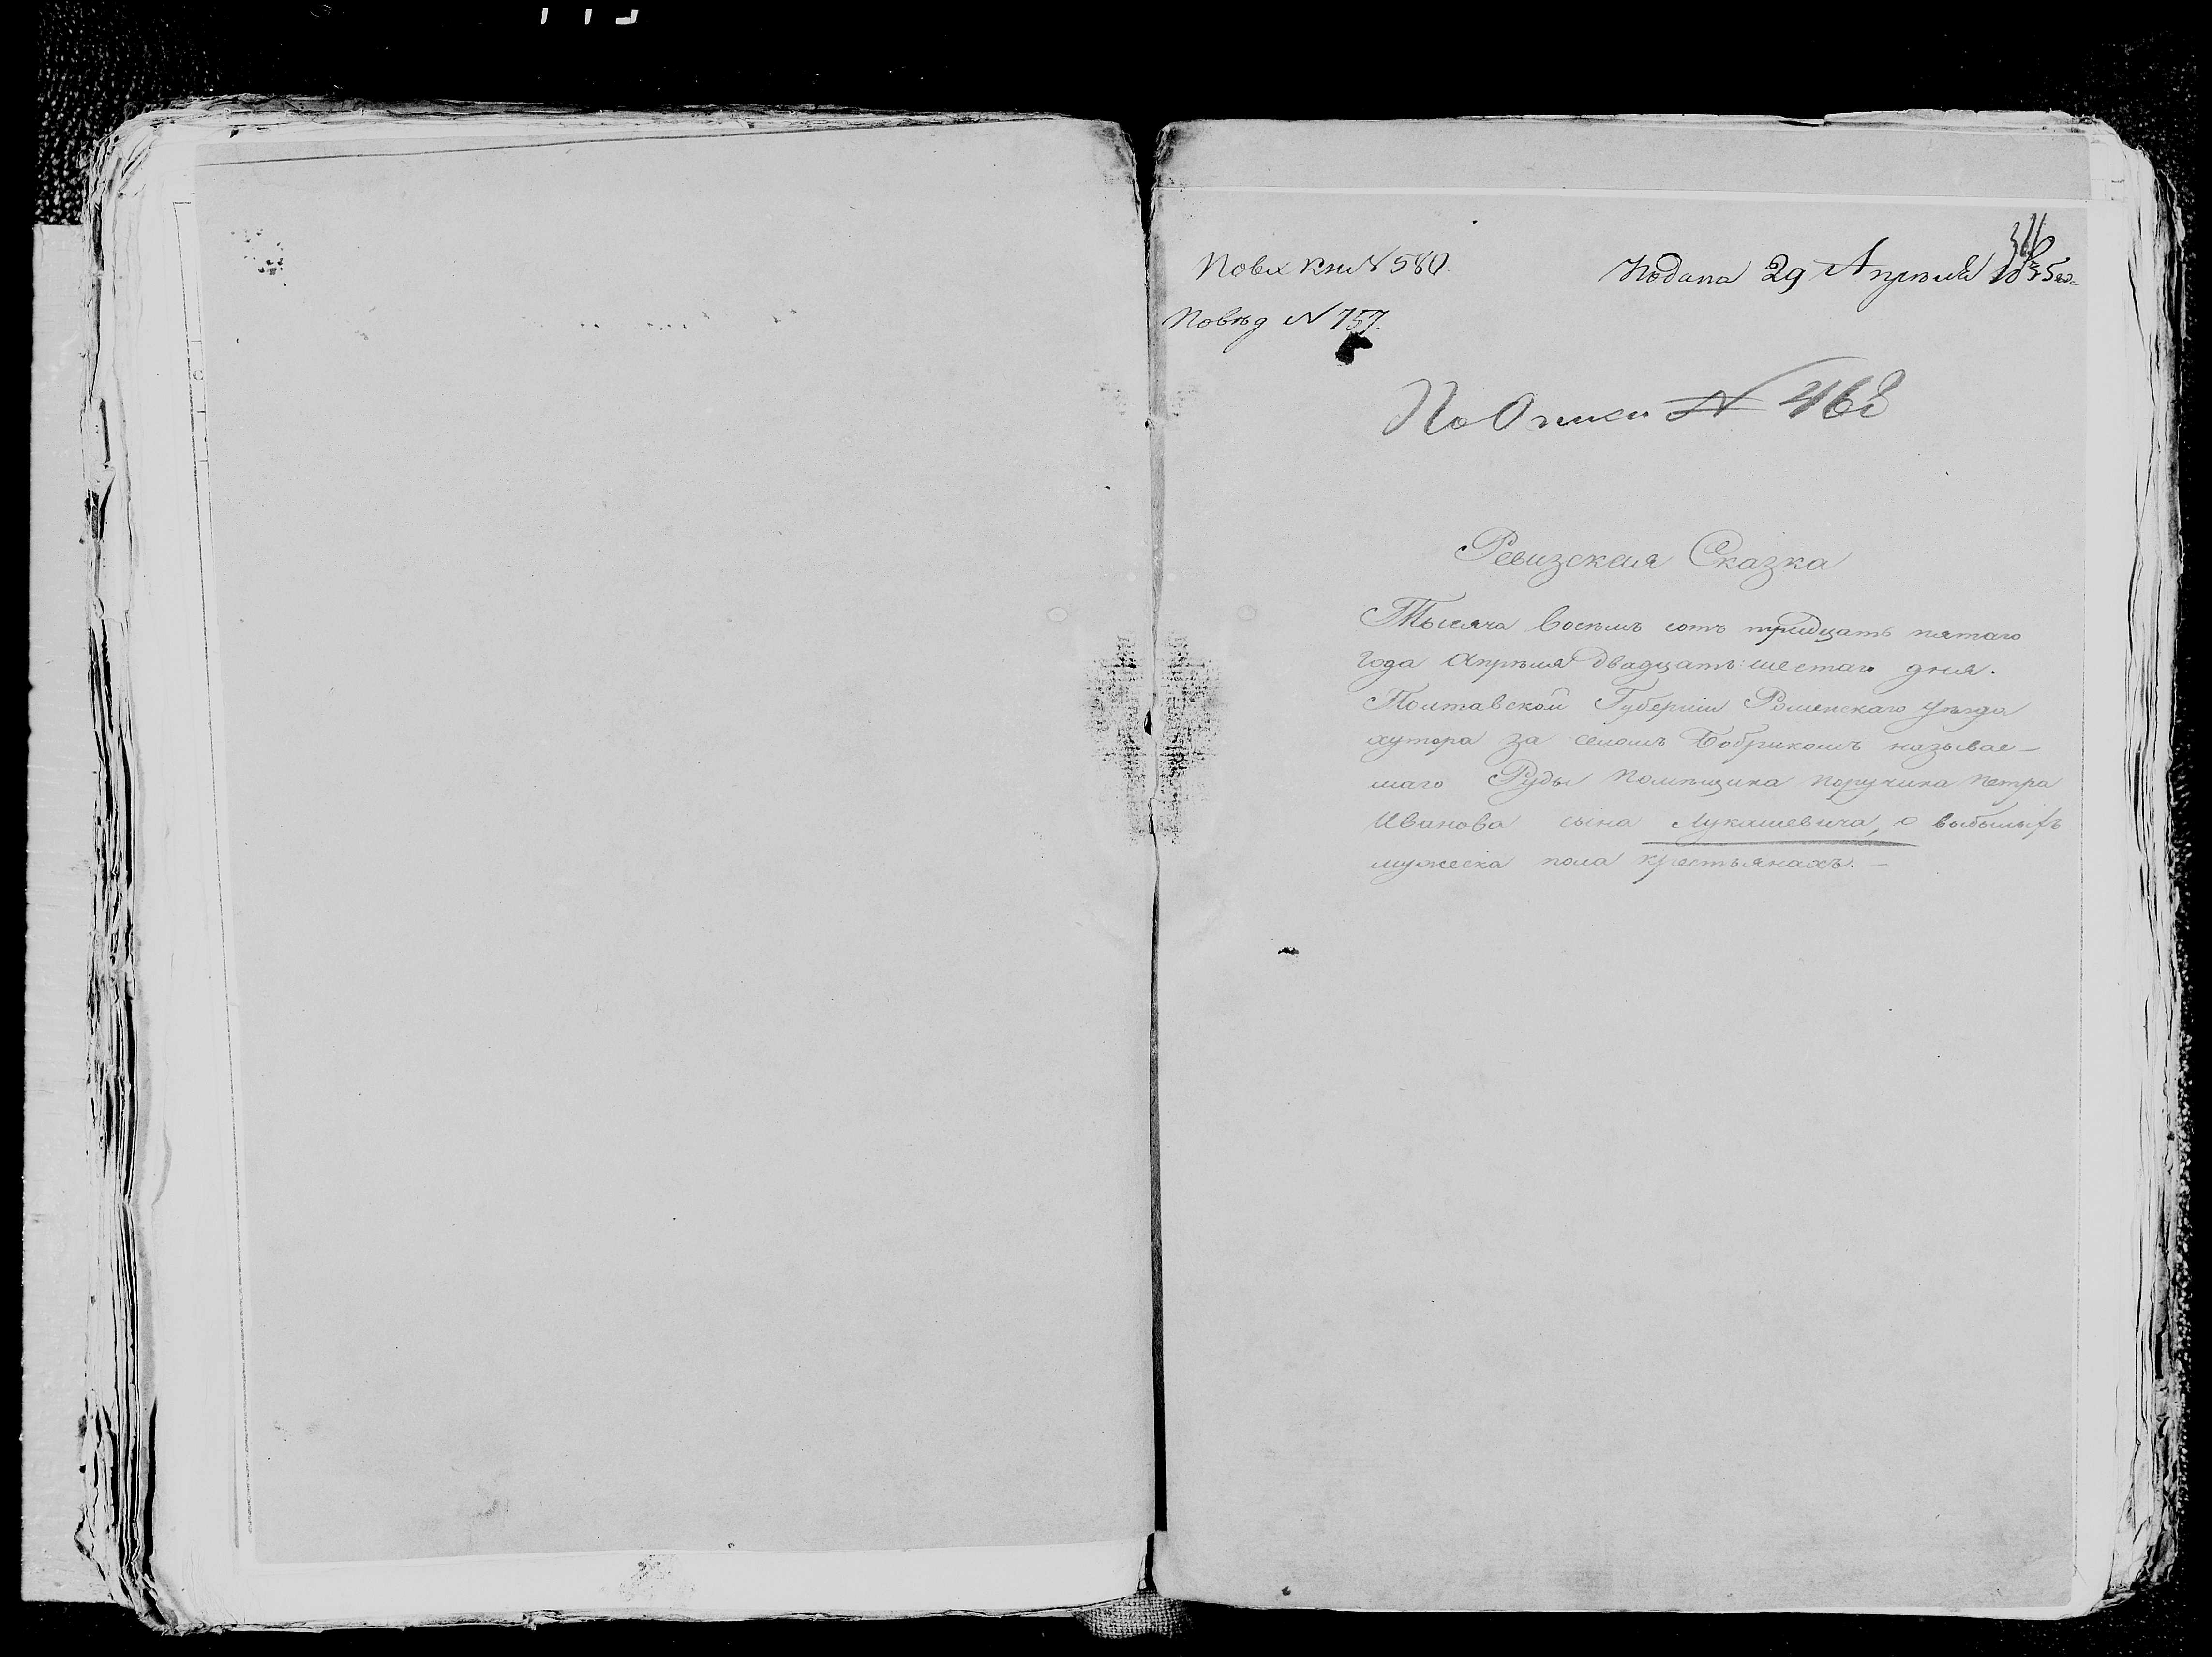 311
По вх кни № 580.
Подана 29 Апрѣля 1835 го
По вѣд № 757.
По Описи № 468
Ревизская Сказка
Тысяча Восемь сотъ тридцать пятаго
года Апрѣля двадцать шестаго дня.
Полтавской Губерніи Роменскаго уѣзда
хутора за селомъ Бобрикомъ называе-
маго Руды помѣщика поручика Петра
Иванова сына Лукашевича, о выбылыхъ
мужеска пола крестьянахъ. —